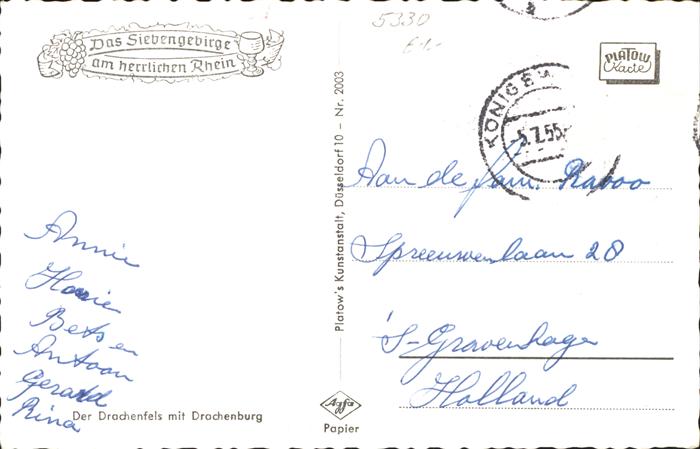 5330
Das Siebengebirge
am herrlichen Rhein
PLATOW
Karte
KÖNIGSW
-5.7.55-
Platow's Kunstanstalt, Düsseldorf 10 – Nr. 2003
Aan de fam. Ravoo
Spreeuwenlaan 28
's-Gravenhage
Holland
Annie
Bets en
Antoon
Gerard
Rina
Der Drachenfels mit Drachenburg
Agfa
Papier